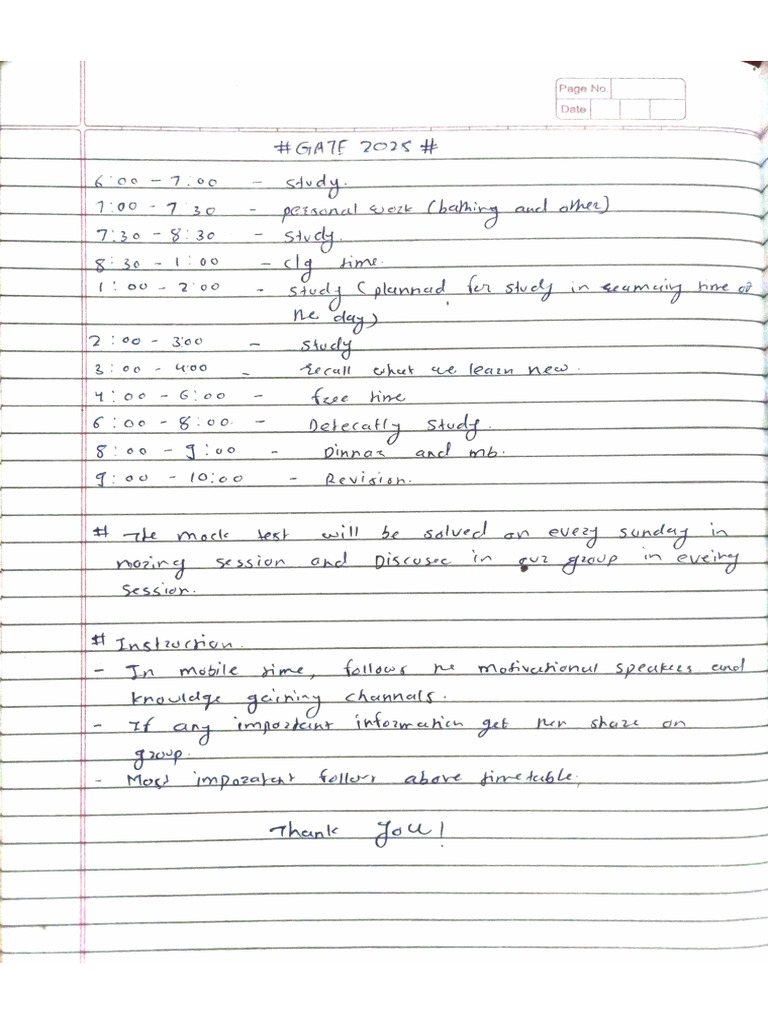 Page No.
Date
# GATE 2025 #
6:00 - 7:00 - study.
7:00 - 7:30 - personal work (bathing and other)
7:30 - 8:30 - study.
8:30 - 1:00 - clg time.
1:00 - 2:00 - study (plannad for study in time of
the day)
2:00 - 3:00 - study
3:00 - 4:00 - recall what we learn new.
4:00 - 6:00 - free time
6:00 - 8:00 - study.
8:00 - 9:00 - Dinnar and mb.
9:00 - 10:00 - Revision.
# The mock test will be solved on every sunday in
moring session and Discusec in our group in eveing
session.
# Instruction.
- In mobile time, follows the motivational speakers and
knowldge gaining channals.
- If any important information get then share on
group.
- Most imporatent follow above timetable.
Thank you!